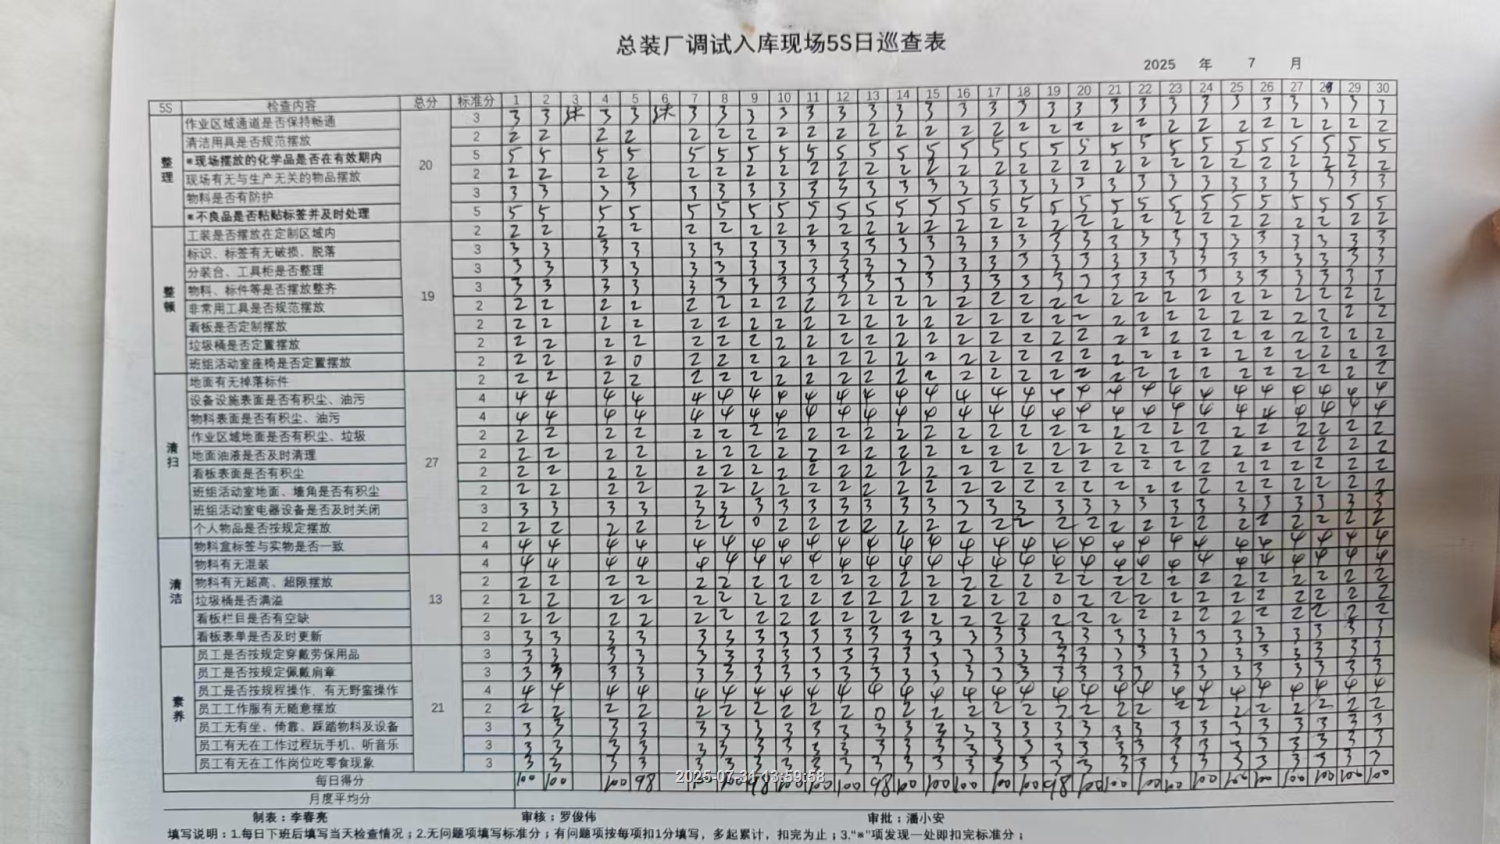 总装厂调试入库现场5S日巡查表
2025 年 7 月
5S 检查内容 总分 标准分 1 2 3 4 5 6 7 8 9 10 11 12 13 14 15 16 17 18 19 20 21 22 23 24 25 26 27 28 29 30
整理 20
作业区域通道是否保持畅通 3 3 3 休 3 3 休 3 3 3 3 3 3 3 3 3 3 3 3 3 3 3 3 3 3 3 3 3 3 3 3
清洁用具是否规范摆放 2 2 2 2 2 2 2 2 2 2 2 2 2 2 2 2 2 2 2 2 2 2 2 2 2 2 2 2 2
*现场摆放的化学品是否在有效期内 5 5 5 5 5 5 5 5 5 5 5 5 5 5 5 5 5 5 5 5 5 5 5 5 5 5 5 5 5
现场有无与生产无关的物品摆放 2 2 2 2 2 2 2 2 2 2 2 2 2 2 2 2 2 2 2 2 2 2 2 2 2 2 2 2 2
物料是否有防护 3 3 3 3 3 3 3 3 3 3 3 3 3 3 3 3 3 3 3 3 3 3 3 3 3 3 3 3 3
*不良品是否粘贴标签并及时处理 5 5 5 5 5 5 5 5 5 5 5 5 5 5 5 5 5 5 5 5 5 5 5 5 5 5 5 5 5
整顿 19
工装是否摆放在定制区域内 2 2 2 2 2 2 2 2 2 2 2 2 2 2 2 2 2 2 2 2 2 2 2 2 2 2 2 2 2
标识、标签有无破损、脱落 3 3 3 3 3 3 3 3 3 3 3 3 3 3 3 3 3 3 3 3 3 3 3 3 3 3 3 3 3
分装台、工具柜是否整理 3 3 3 3 3 3 3 3 3 3 3 3 3 3 3 3 3 3 3 3 3 3 3 3 3 3 3 3 3
物料、标件等是否摆放整齐 3 3 3 3 3 3 3 3 3 3 3 3 3 3 3 3 3 3 3 3 3 3 3 3 3 3 3 3 3
非常用工具是否规范摆放 2 2 2 2 2 2 2 2 2 2 2 2 2 2 2 2 2 2 2 2 2 2 2 2 2 2 2 2 2
看板是否定制摆放 2 2 2 2 2 2 2 2 2 2 2 2 2 2 2 2 2 2 2 2 2 2 2 2 2 2 2 2 2
垃圾桶是否定置摆放 2 2 2 2 2 2 2 2 2 2 2 2 2 2 2 2 2 2 2 2 2 2 2 2 2 2 2 2 2
班组活动室座椅是否定置摆放 2 2 2 2 0 2 2 2 2 2 2 2 2 2 2 2 2 2 2 2 2 2 2 2 2 2 2 2 2
清扫 27
地面有无掉落标件 2 2 2 2 2 2 2 2 2 2 2 2 2 2 2 2 2 2 2 2 2 2 2 2 2 2 2 2 2
设备设施表面是否有积尘、油污 4 4 4 4 4 4 4 4 4 4 4 4 4 4 4 4 4 4 4 4 4 4 4 4 4 4 4 4 4
物料表面是否有积尘、油污 4 4 4 4 4 4 4 4 4 4 4 4 4 4 4 4 4 4 4 4 4 4 4 4 4 4 4 4 4
作业区域地面是否有积尘、垃圾 2 2 2 2 2 2 2 2 2 2 2 2 2 2 2 2 2 2 2 2 2 2 2 2 2 2 2 2 2
地面油液是否及时清理 2 2 2 2 2 2 2 2 2 2 2 2 2 2 2 2 2 2 2 2 2 2 2 2 2 2 2 2 2
看板表面是否有积尘 2 2 2 2 2 2 2 2 2 2 2 2 2 2 2 2 2 2 2 2 2 2 2 2 2 2 2 2 2
班组活动室地面、墙角是否有积尘 2 2 2 2 2 2 2 2 2 2 2 2 2 2 2 2 2 2 2 2 2 2 2 2 2 2 2 2 2
班组活动室电器设备是否及时关闭 3 3 3 3 3 3 3 3 3 3 3 3 3 3 3 3 3 3 3 3 3 3 3 3 3 3 3 3 3
个人物品是否按规定摆放 2 2 2 2 2 2 2 0 2 2 2 2 2 2 2 2 2 2 2 2 2 2 2 2 2 2 2 2 2
清洁 13
物料盒标签与实物是否一致 4 4 4 4 4 4 4 4 4 4 4 4 4 4 4 4 4 4 4 4 4 4 4 4 4 4 4 4 4
物料有无混装 4 4 4 4 4 4 4 4 4 4 4 4 4 4 4 4 4 4 4 4 4 4 4 4 4 4 4 4 4
物料有无超高、超限摆放 2 2 2 2 2 2 2 2 2 2 2 2 2 2 2 2 2 2 2 2 2 2 2 2 2 2 2 2 2
垃圾桶是否满溢 2 2 2 2 2 2 2 2 2 2 2 2 2 2 2 2 2 0 2 2 2 2 2 2 2 2 2 2 2
看板栏目是否有空缺 2 2 2 2 2 2 2 2 2 2 2 2 2 2 2 2 2 2 2 2 2 2 2 2 2 2 2 2 2
看板表单是否及时更新 3 3 3 3 3 3 3 3 3 3 3 3 3 3 3 3 3 3 3 3 3 3 3 3 3 3 3 3 3
素养 21
员工是否按规定穿戴劳保用品 3 3 3 3 3 3 3 3 3 3 3 3 3 3 3 3 3 3 3 3 3 3 3 3 3 3 3 3 3
员工是否按规定佩戴肩章 3 3 3 3 3 3 3 3 3 3 3 3 3 3 3 3 3 3 3 3 3 3 3 3 3 3 3 3 3
员工是否按规程操作、有无野蛮操作 4 4 4 4 4 4 4 4 4 4 4 4 4 4 4 4 4 4 4 4 4 4 4 4 4 4 4 4 4
员工工作服有无随意摆放 2 2 2 2 2 2 2 2 2 2 2 0 2 2 2 2 2 2 2 2 2 2 2 2 2 2 2 2 2
员工无有坐、倚靠、踩踏物料及设备 3 3 3 3 3 3 3 3 3 3 3 3 3 3 3 3 3 3 3 3 3 3 3 3 3 3 3 3 3
员工有无在工作过程玩手机、听音乐 3 3 3 3 3 3 3 3 3 3 3 3 3 3 3 3 3 3 3 3 3 3 3 3 3 3 3 3 3
员工有无在工作岗位吃零食现象 3 3 3 3 3 3 3 3 3 3 3 3 3 3 3 3 3 3 3 3 3 3 3 3 3 3 3 3 3
每日得分 100 100 100 98 100 100 98 100 100 100 98 100 100 100 100 100 98 100 100 100 100 100 100 100 100 100 100 100
2025-07-31 13:59:58
月度平均分
制表：李春亮 审核：罗俊伟 审批：潘小安
填写说明：1.每日下班后填写当天检查情况；2.无问题项填写标准分；有问题项按每项扣1分填写，多起累计，扣完为止；3."*"项发现一处即扣完标准分；